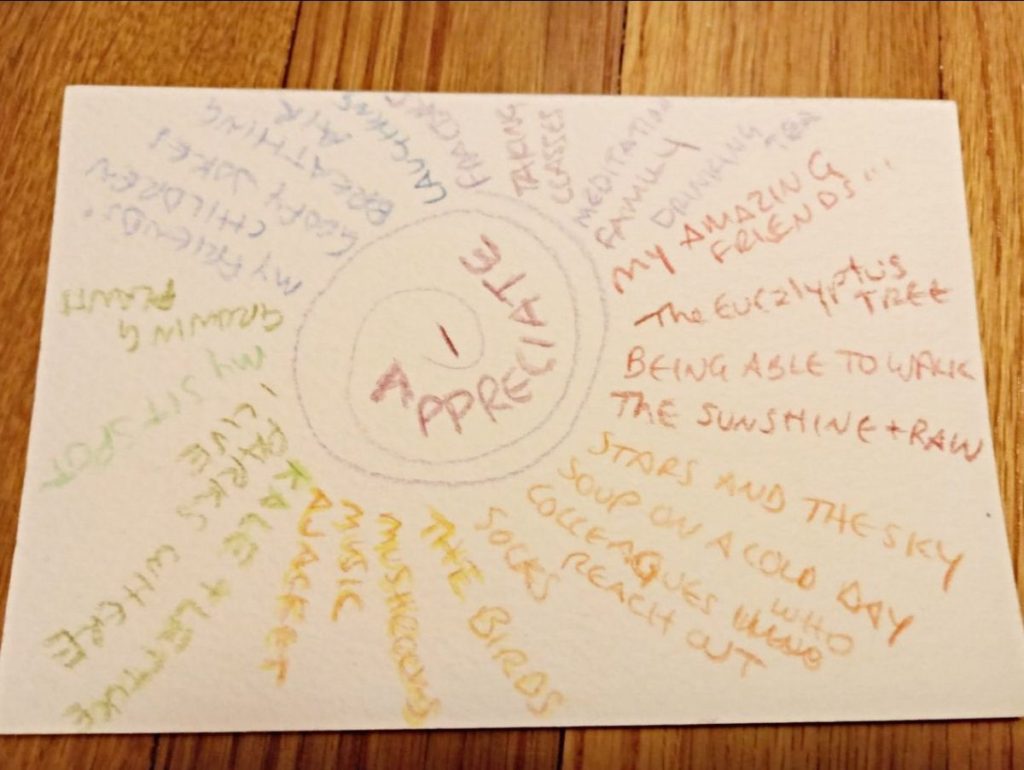 I
APPRECIATE
MY AMAZING
FRIENDS...
The Eucalyptus
TREE
BEING ABLE TO WALK
THE SUNSHINE + RAIN
STARS AND THE SKY
SOUP ON A COLD DAY
COLLEAGUES WHO
REACH OUT
SOCKS
THE BIRDS
MUSHROOMS
MUSIC
A JACKET
KALE + LETTUCE
PARKS WHERE
I LIVE
MY SIT SPOT
GROWING
PLANTS
MY FRIENDS'
CHILDREN
GOOFY JOKES!
BREATHING
AIR
LAUGHING
TAKING
CLASSES
MEDITATION
FAMILY
DRINKING
TEA